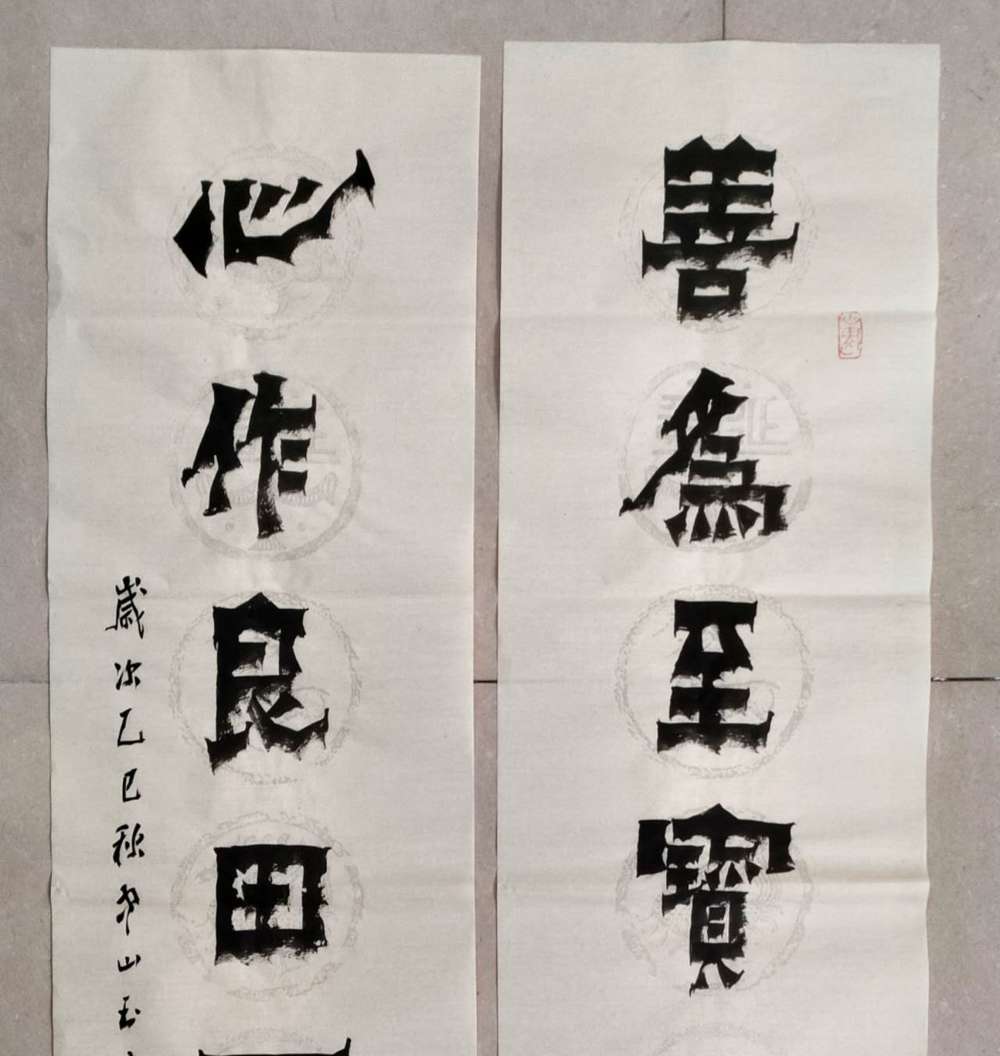 善為至寶
心作良田
歲次乙巳秋
山玉